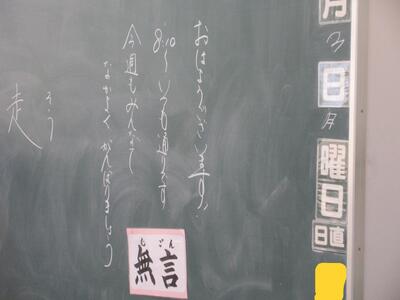 月
3
日
月
曜日
日直
おはようございます。
8:10〜いつも通りです
今週もみんなで
なかよくがんばりましょう
そう
走
むごん
無言